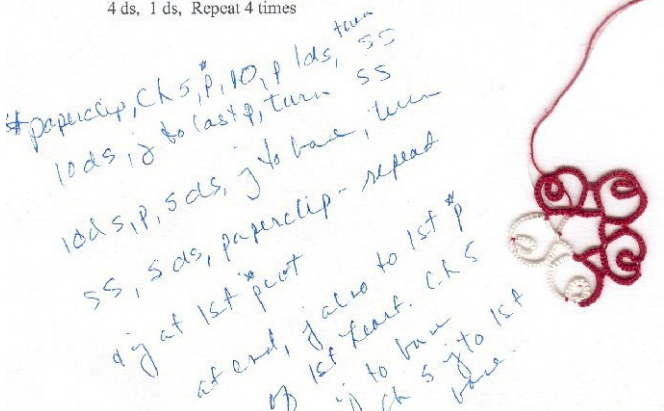 4 ds, 1 ds, Repeat 4 times
* paperclip, Ch 5, *p, 10, p 1ds, turn
10ds, j to last p, turn SS
10ds, p, 5ds, j to base, turn
SS, 5 ds, paperclip - repeat
j at 1st * picot
at end, j also to 1st *p
of 1st heart. Ch 5
j to base
ch 5 j to 1st
base.